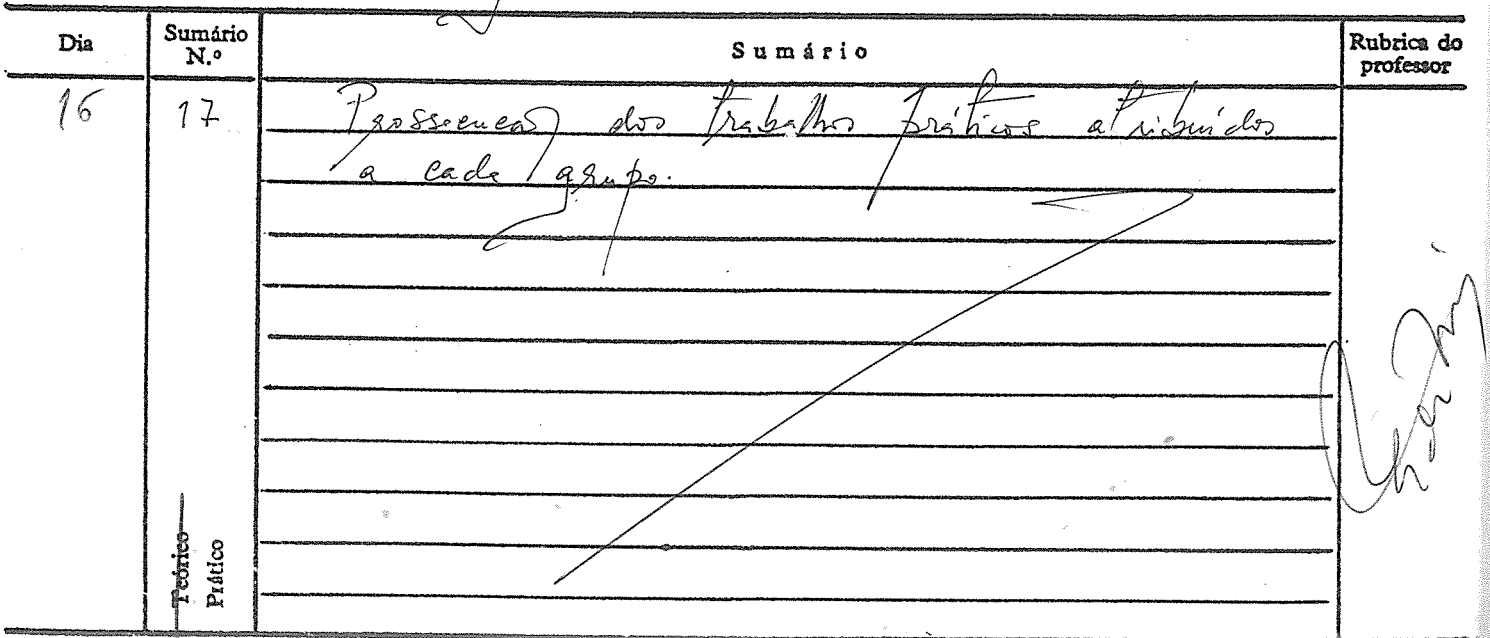 Dia
Sumário N.º
Sumário
Rubrica do professor
16
17
Prossecução dos trabalhos práticos atribuídos
a cada grupo.
Teórico
Prático